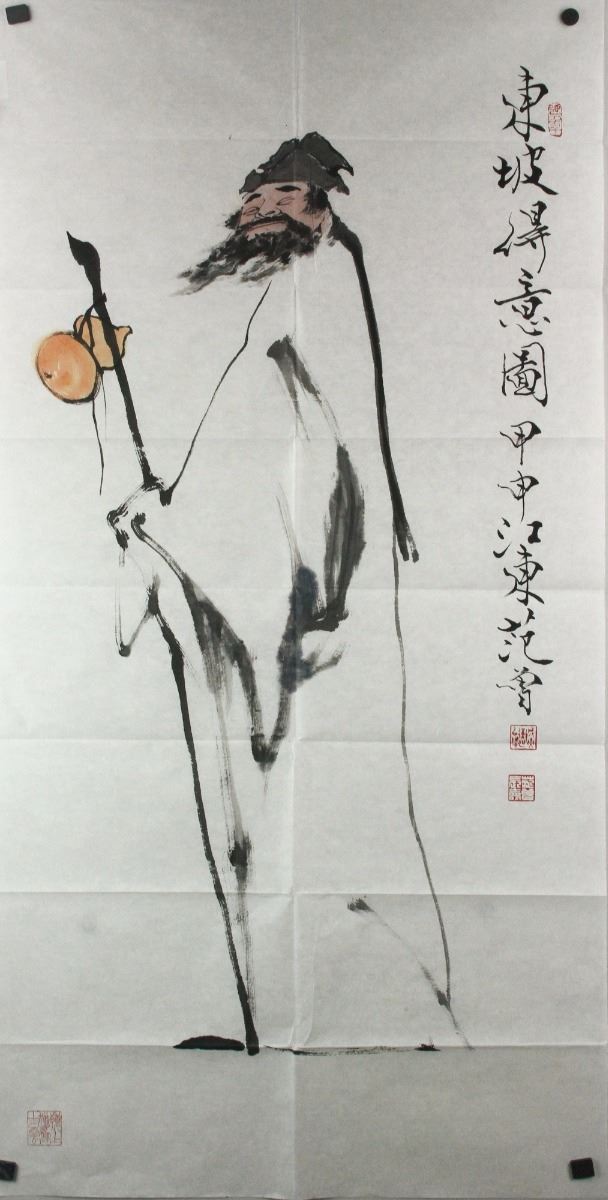 東坡得意圖甲申江東范曾